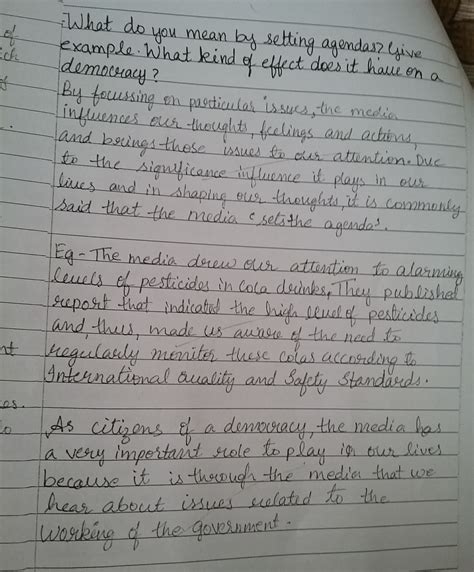 What do you mean by setting agendas? Give
of
example. What kind of effect does it have on a
ich
democracy?
By focussing on particular issues, the media
influences our thoughts, feelings and actions,
and brings those issues to our attention. Due
to the significance influence it plays in our
lives and in shaping our thoughts, it is commonly
said that the media 'sets the agenda'.
Eg - The media drew our attention to alarming
levels of pesticides in cola drinks, They published
report that indicated the high level of pesticides
and, thus, made us aware of the need to
regularly monitor these colas according to
International Quality and Safety Standards.
As citizens of a democracy, the media has
a very important role to play in our lives
because it is through the media that we
hear about issues related to the
working of the government.